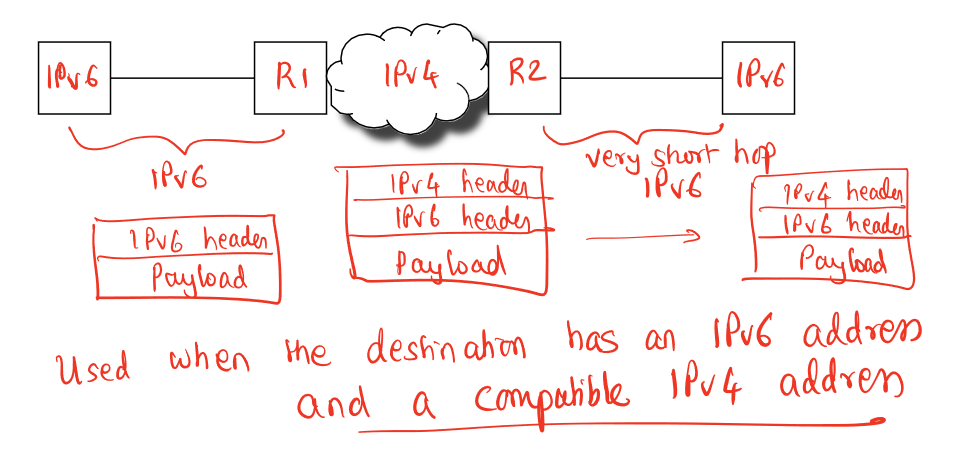 IPv6 R1 IPv4 R2 IPv6
IPv6
very short hop
IPv6
IPv6 header
Payload
IPv4 header
IPv6 header
Payload
IPv4 header
IPv6 header
Payload
Used when the destination has an IPv6 address
and a compatible IPv4 address